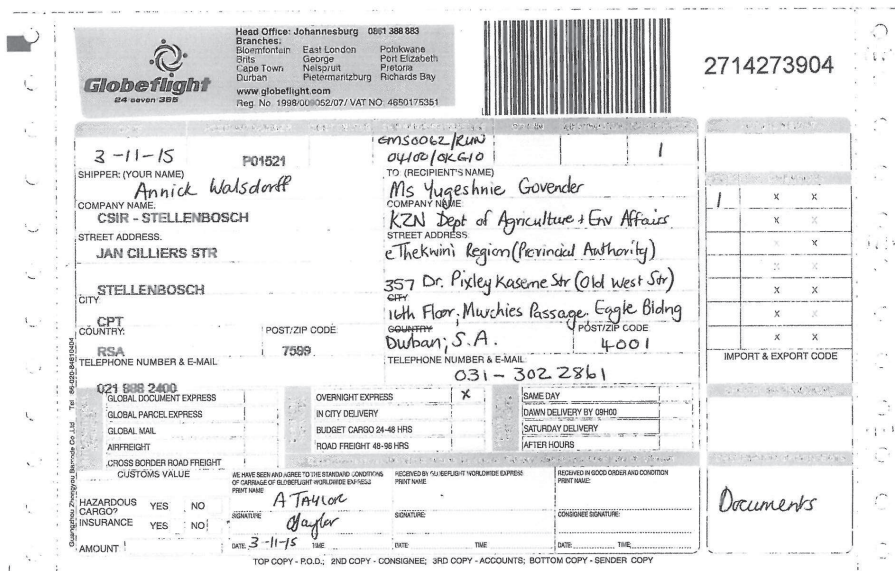 Globeflight
24 seven 365
Head Office: Johannesburg 0861 388 883
Branches:
Bloemfontein East London Polokwane
Brits George Port Elizabeth
Cape Town Nelspruit Pretoria
Durban Pietermaritzburg Richards Bay
www.globeflight.com
Reg. No. 1998/009052/07/ VAT NO: 4650175351
2714273904
3-11-15 P01521
EMS0062/RUN
04100/0KG10
1
SHIPPER: (YOUR NAME)
Annick Walsdorff
COMPANY NAME:
CSIR - STELLENBOSCH
STREET ADDRESS:
JAN CILLIERS STR
STELLENBOSCH
CITY
CPT
COUNTRY: POST/ZIP CODE
RSA 7599
TELEPHONE NUMBER & E-MAIL
021 888 2400
TO (RECIPIENT'S NAME)
Ms Yugeshnie Govender
COMPANY NAME
KZN Dept of Agriculture + Env Affairs
STREET ADDRESS
eThekwini Region (Provincial Authority)
357 Dr. Pixley Kaseme Str (Old West Str)
CITY
16th Floor, Murchies Passage, Eagle Bldng
COUNTRY POST/ZIP CODE
Durban, S.A. 4001
TELEPHONE NUMBER & E-MAIL
031-302 2861
1 x x
x x
x
x x
x x
x x
x x
IMPORT & EXPORT CODE
GLOBAL DOCUMENT EXPRESS
GLOBAL PARCEL EXPRESS
GLOBAL MAIL
AIRFREIGHT
CROSS BORDER ROAD FREIGHT
OVERNIGHT EXPRESS x
IN CITY DELIVERY
BUDGET CARGO 24-48 HRS
ROAD FREIGHT 48-96 HRS
SAME DAY
DAWN DELIVERY BY 09H00
SATURDAY DELIVERY
AFTER HOURS
CUSTOMS VALUE
HAZARDOUS CARGO? YES NO
INSURANCE YES NO
AMOUNT
WE HAVE SEEN AND AGREE TO THE STANDARD CONDITIONS
OF CARRIAGE OF GLOBEFLIGHT WORLDWIDE EXPRESS
PRINT NAME
A TAYLOR
SIGNATURE
ATaylor
DATE 3-11-15 TIME
RECEIVED BY GLOBEFLIGHT WORLDWIDE EXPRESS
PRINT NAME
SIGNATURE:
DATE: TIME
RECEIVED IN GOOD ORDER AND CONDITION
PRINT NAME:
CONSIGNEE SIGNATURE:
DATE: TIME
Documents
TOP COPY - P.O.D.; 2ND COPY - CONSIGNEE; 3RD COPY - ACCOUNTS; BOTTOM COPY - SENDER COPY